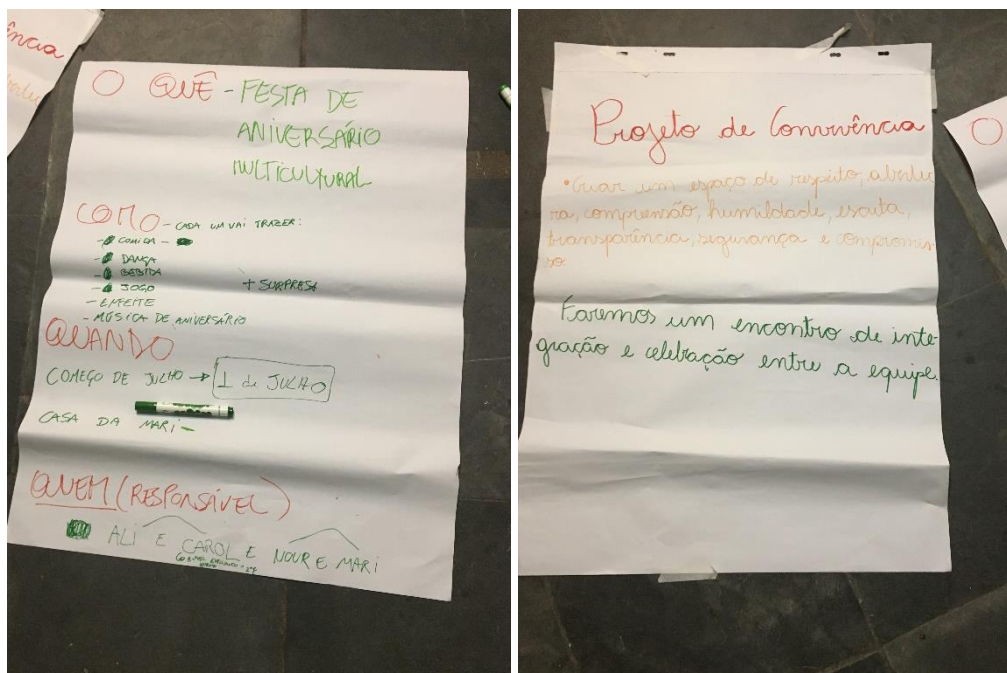 ência
O QUÊ - FESTA DE
ANIVERSÁRIO
MULTICULTURAL
COMO - CADA UM VAI TRAZER:
- COMIDA -
- DANÇA
- BEBIDA
- JOGO
+ SURPRESA
- ENFEITE
- MÚSICA DE ANIVERSÁRIO
QUANDO
COMEÇO DE JULHO → 1 de JULHO
CASA DA MARI -
QUEM (RESPONSÁVEL)
ALI E CAROL E NOUR E MARI
Projeto de Convivência
• Criar um espaço de respeito, abertu
ra, comprensão, humildade, escuta,
transparência, segurança e compromis
so
Faremos um encontro de inte-
gração e celebração entre a equipe.
O